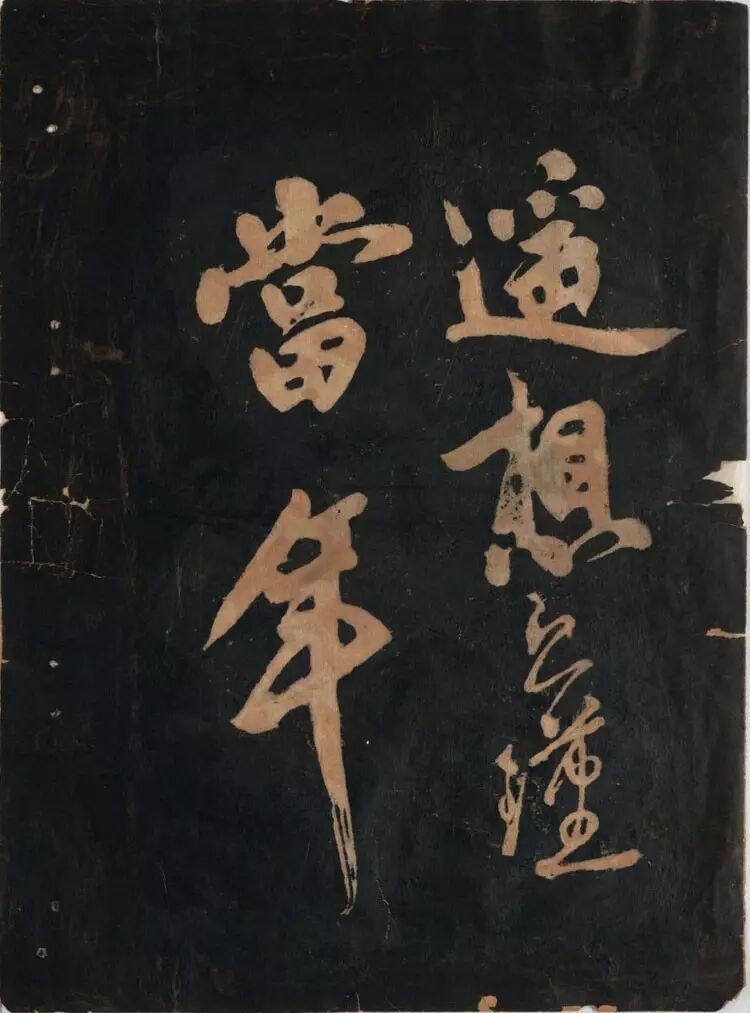 遙想公瑾
當年